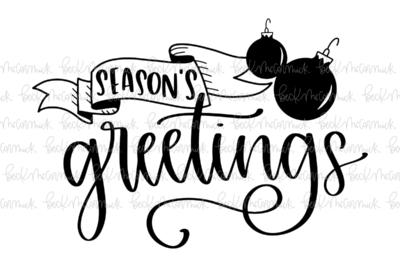 SEASON'S
greetings